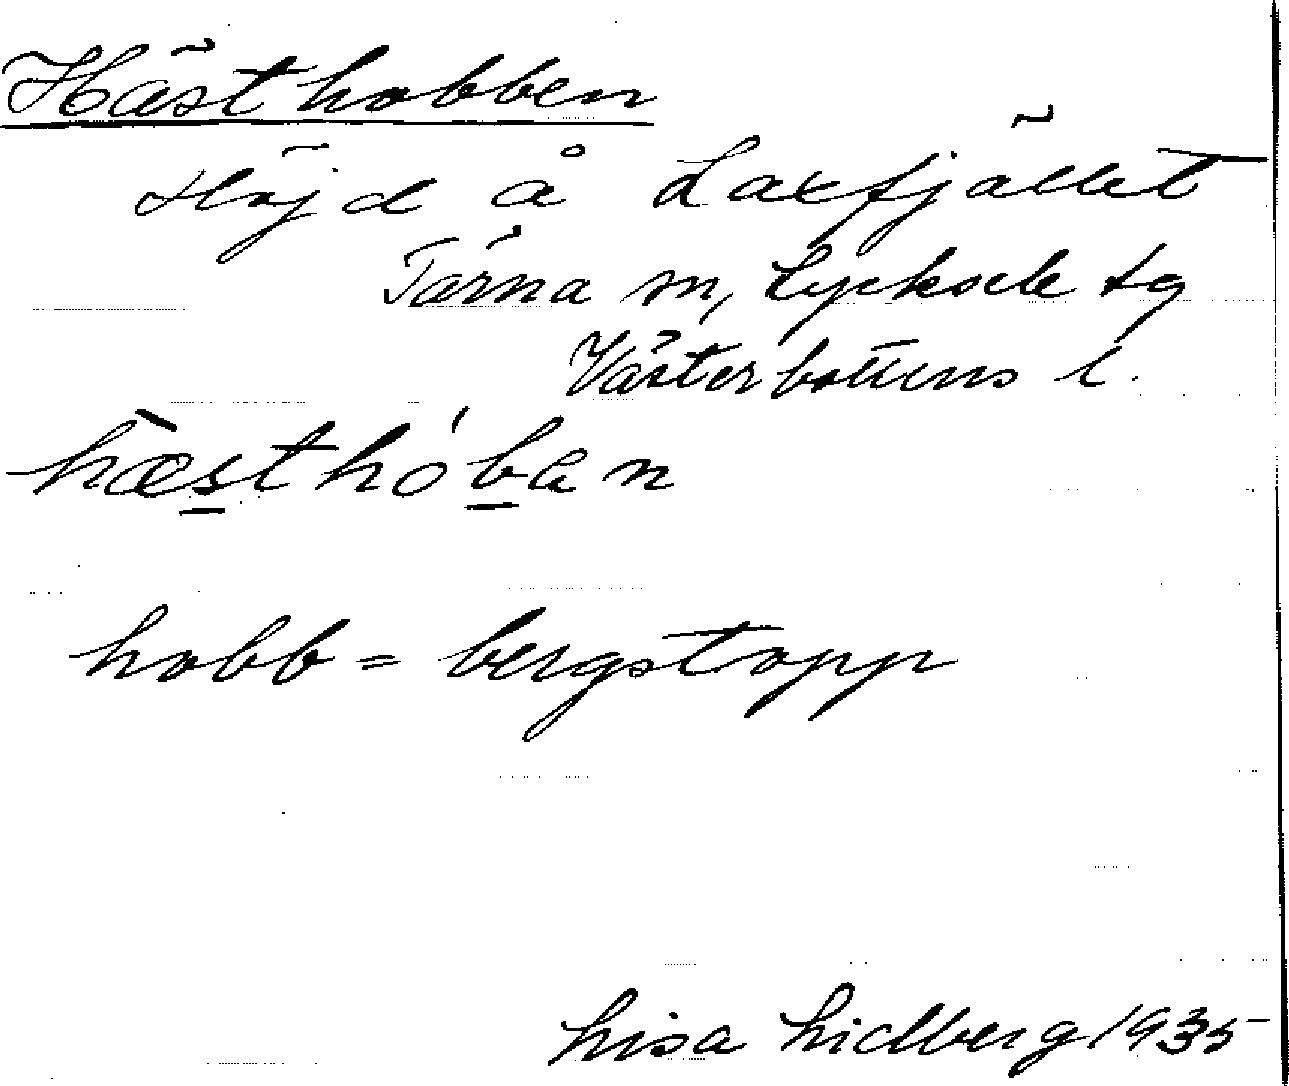 Hästhobben
Höjd å Laxfjället
Tärna sn, Lycksele tg
Västerbottens l.
hæ̀sthó̀ban
hobb = bergstopp
Lisa Lidberg 1935